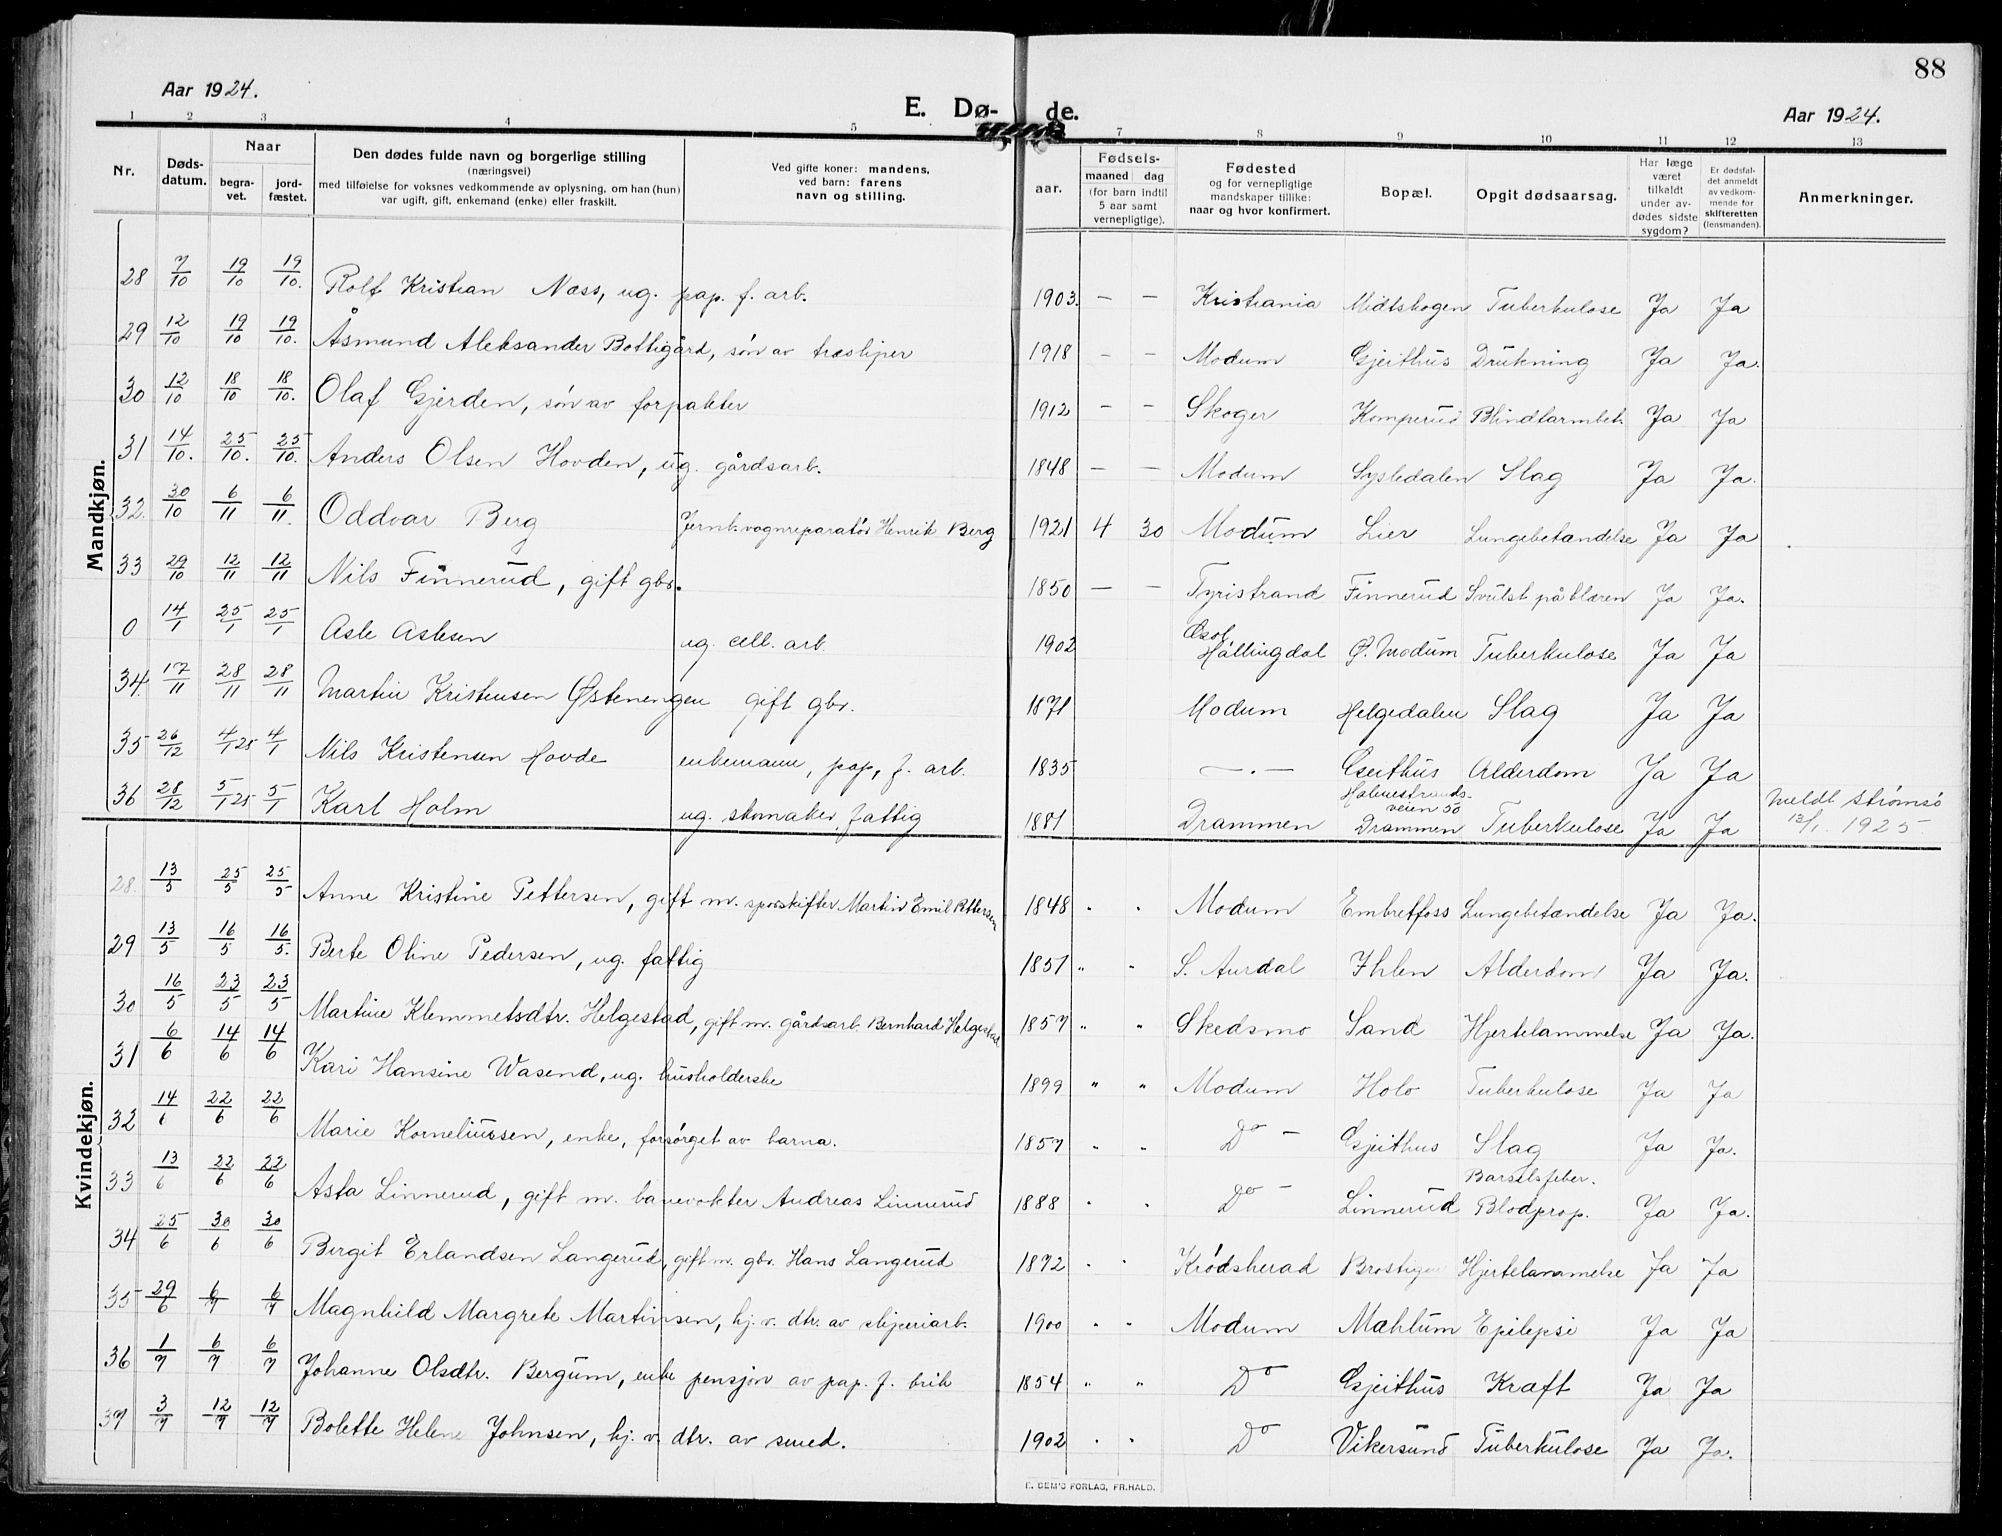 88
Aar 1924.
E. Dø- de.
Aar 1924.
1 2 3 4 5 7 8 9 10 11 12 13
Nr.
Døds-
datum.
Naar
begra-
vet.
jord-
fæstet.
Den dødes fulde navn og borgerlige stilling
(næringsvei)
med tilføielse for voksnes vedkommende av oplysning, om han (hun)
var ugift, gift, enkemand (enke) eller fraskilt.
Ved gifte koner: mandens,
ved barn: farens
navn og stilling.
aar.
Fødsels-
maaned dag
(for barn indtil
5 aar samt
vernepligtige).
Fødested
og for vernepligtige
mandskaper tillike:
naar og hvor konfirmert.
Bopæl.
Opgit dødsaarsag.
Har læge
været
tilkaldt
under av-
dødes sidste
sygdom?
Er dødsfal-
det anmeldt
av vedkom-
mende for
skifteretten
(lensmanden).
Anmerkninger.
Mandkjøn.
28 7/10 19/10 19/10. Rolf Kristian Næss, ug. pap. f. arb. 1903. — — Kristiania Midtskogen Tuberkulose Ja Ja
29 12/10 19/10 19/10. Åsmund Aleksander Bottigård, søn av træsliper 1918 — — Modum Gjeithus Drukning Ja Ja.
30 12/10 18/10 18/10. Olaf Gjerden, søn av forpakter 1912 — — Skoger Komperud Blindtarmbet. Ja Ja
31 14/10. 25/10. 25/10. Anders Olsen Hovden, ug. gårdsarb. 1848 — — Modum Sysledalen Slag Ja Ja.
32. 30/10 6/11 6/11. Oddvar Berg Jernb.vognreparatør Henrik Berg 1921 4 30 Modum Lier Lungebetændelse Ja Ja
33 29/10 12/11 12/11 Nils Finnerud, gift gbr. 1850 — — Tyristrand Finnerud Svulst på blæren Ja Ja.
0 14/1 25/1 25/1 Asle Aslesen ug. cell. arb. 1902 Hallingdal Ø. Modum Tuberkulose Ja Ja
34. 17/11 28/11 28/11 Martin Kristensen Østenengen gift gbr. 1871 Modum Helgedalen Slag Ja Ja
35 26/12 4/1 25 4/1 Nils Kristensen Hovde enkemann, pap, f. arb. 1835 —.— Gjeithus Alderdom Ja Ja
36 28/12 5/1 25 5/1 Karl Holm ug. skomaker, fattig 1881 Drammen Holmestrands-
veien 50
Drammen Tuberkulose Ja Ja Meldt Strømsø
13/1. 1925
Kvindekjøn.
28. 13/5 25/5 25/5 Anne Kristine Pettersen, gift m. sporskifter Martin Emil Pettersen 1848 " " Modum Embretfoss Lungebetændelse Ja Ja.
29 13/5 16/5 16/5. Berte Oline Pedersen, ug. fattig 1851 " " S. Aurdal Ihlen Alderdom Ja Ja.
30 16/5 23/5 23/5 Martine Klemmetsdtr. Helgestad, gift m. gårdsarb. Bernhard Helgestad 1857 " " Skedsmo Sand Hjertelammelse Ja Ja.
31 6/6 14/6 14/6 Kari Hansine Wasend, ug. husholderske 1899 " " Modum Holo Tuberkulose Ja Ja
32 14/6 22/6 22/6 Marie Korneliussen, enke, forsørget av barna. 1857 " " Do — Gjeithus Slag Ja Ja.
33 13/6 22/6 22/6 Asta Linnerud, gift m. banevokter Andreas Linnerud 1888 " " Do — Linnerud Barselsfeber.
Blodprop. Ja Ja.
34 25/6 30/6 30/6 Bergit Erlandsen Langerud, gift m. gbr. Hans Langerud 1872 " " Krødsherad Brostigen Hjertelammelse Ja Ja
35 29/6 6/7 6/7 Magnhild Margrete Martinsen, hj. v. dtr. av sliperiarb. 1900 " " Modum Mæhlum Epilepsi Ja Ja
36 1/7 6/7 6/7 Johanne Olsdtr. Bergum, enke pensjon av pap. f. brik 1854 " " Do Gjeithus Kræft Ja Ja
37 3/7 12/7 12/7 Bolette Helene Johnsen, hj. v. dtr. av smed. 1902 " " Do Vikersund Tuberkulose Ja Ja.
E. SEM'S FORLAG, FR.HALD.